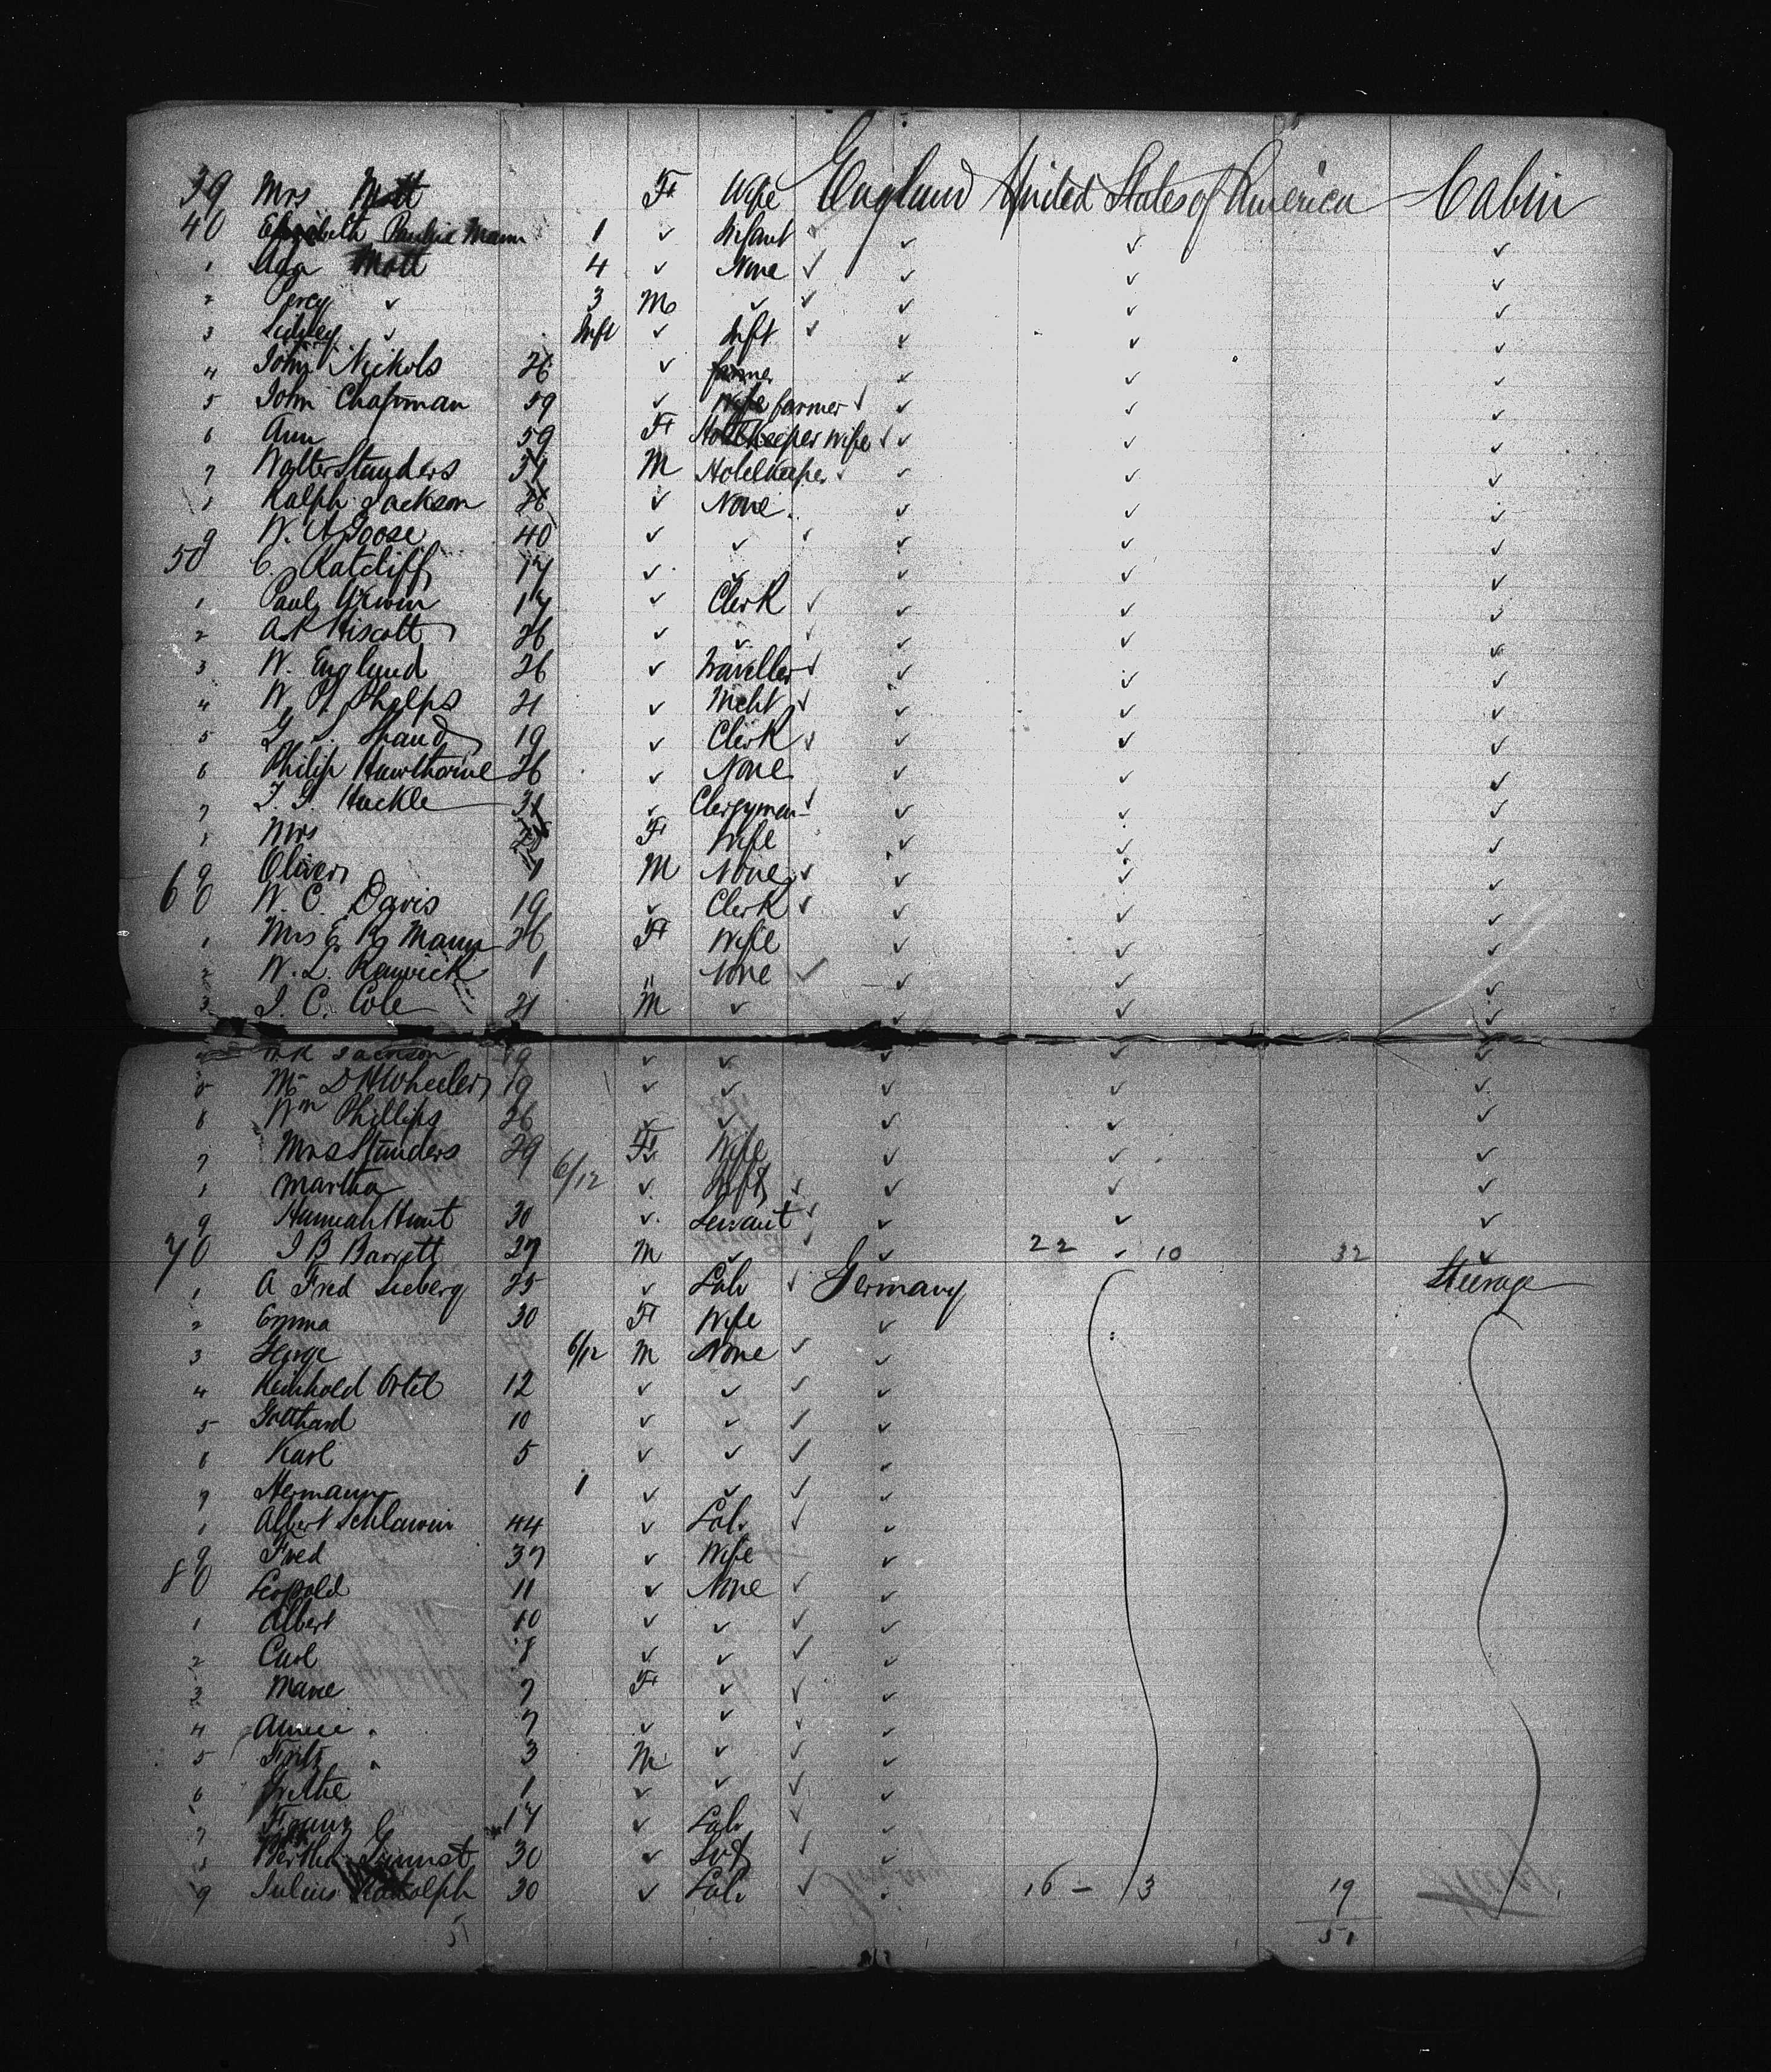 39 Mrs Mott F Wife England United States of America Cabin
40 Elizabeth Mann 1 ✓ Infant ✓ ✓ ✓ ✓
1 Ada Mott 4 ✓ None ✓ ✓ ✓ ✓
2 Percy ✓ 3 M ✓ ✓ ✓ ✓ ✓
3 Sidney ✓ Inft ✓ Inft ✓ ✓ ✓ ✓
4 John Nickols 26 ✓ farmer ✓ ✓ ✓
5 John Chapman 59 ✓ farmer ✓ ✓ ✓ ✓
6 Ann 59 F Hotelkeeper wife ✓ ✓ ✓ ✓
7 Walter Standers 31 M Hotelkeeper ✓ ✓ ✓ ✓
8 Ralph Jackson 26 ✓ None ✓ ✓ ✓
9 W. A Goose 40 ✓ ✓ ✓ ✓ ✓ ✓
50 C. Ratcliff 17 ✓ ✓ ✓ ✓ ✓
1 Paul 17 ✓ Clerk ✓ ✓ ✓ ✓
2 A. R Hiscott 26 ✓ ✓ ✓ ✓ ✓ ✓
3 W. England 26 ✓ Traveller ✓ ✓ ✓ ✓
4 W. H Phelps 21 ✓ Mcht ✓ ✓ ✓ ✓
5 G. S. Shand 19 ✓ Clerk ✓ ✓ ✓ ✓
6 Philip Hawthorne 26 ✓ None ✓ ✓ ✓
7 T. G. Huckle 31 ✓ Clergyman ✓ ✓ ✓ ✓
8 Mrs F Wife ✓ ✓ ✓
9 Oliver M None ✓ ✓ ✓ ✓
60 W. C. Davis 19 ✓ Clerk ✓ ✓ ✓ ✓
1 Mrs E. R. Mann 26 F Wife ✓ ✓ ✓
2 W. L. Renwick 1 " None ✓ ✓ ✓ ✓
3 J. C. Cole 21 M ✓ ✓ ✓ ✓
Mr Jackson 19 ✓ ✓ ✓ ✓ ✓
5 Mr D H Wheeler 19 ✓ ✓ ✓ ✓ ✓
6 Wm Phillips 26 ✓ ✓ ✓ ✓ ✓
7 Mrs Standers 29 F Wife ✓ ✓ ✓
8 Martha 6/12 ✓ Inft ✓ ✓ ✓ ✓
9 Hannah Hunt 30 ✓ Servant ✓ ✓ ✓ ✓
70 J B Barrett 27 M ✓ ✓ ✓ 22 ✓ 10 32 ✓
1 A Fred Sieberg 25 ✓ Lab ✓ Germany Steerage
2 Emma 30 F Wife ✓
3 George 6/12 M None ✓ ✓
4 Reinhold Ortel 12 ✓ ✓ ✓ ✓
5 Gotthard 10 ✓ ✓ ✓ ✓
6 Karl 5 ✓ ✓ ✓ ✓
7 Hermann 1 ✓ ✓ ✓ ✓
8 Albert Schlawin 44 ✓ Lab. ✓ ✓
9 Fred 37 ✓ Wife ✓
80 Leopold 11 ✓ None ✓ ✓
1 Albert 10 ✓ ✓ ✓ ✓
2 Carl 8 ✓ ✓ ✓ ✓
3 Marie 7 F ✓ ✓ ✓
4 7 ✓ ✓ ✓ ✓
5 Fritz " 3 M ✓ ✓ ✓
6 Grethe 1 ✓ ✓ ✓ ✓
7 Franz 17 ✓ Lab. ✓ ✓
8 Bertha 30 ✓ Svt ✓ ✓
9 Julius Rudolph 30 ✓ Lab. ✓ 16 – 3 19
51 51